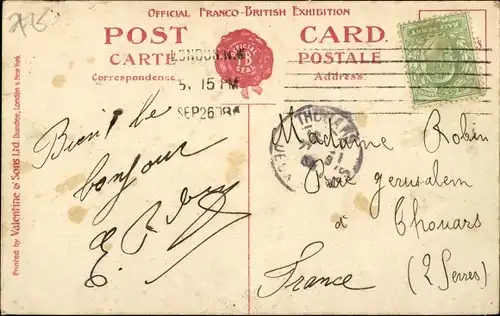 Official Franco-British Exhibition
POST CARD.
CARTE POSTALE
Correspondence Address:
OFFICIAL
F B
SEAL
LONDON.N.W.
5. 15 PM
SEP 26 08
THOUARS
Printed by Valentine & Sons Ltd. Dundee, London & New York
Bien le
bonjour
Madame Robin
Rue Jerusalem
à Thouars
(2 Sevres)
France